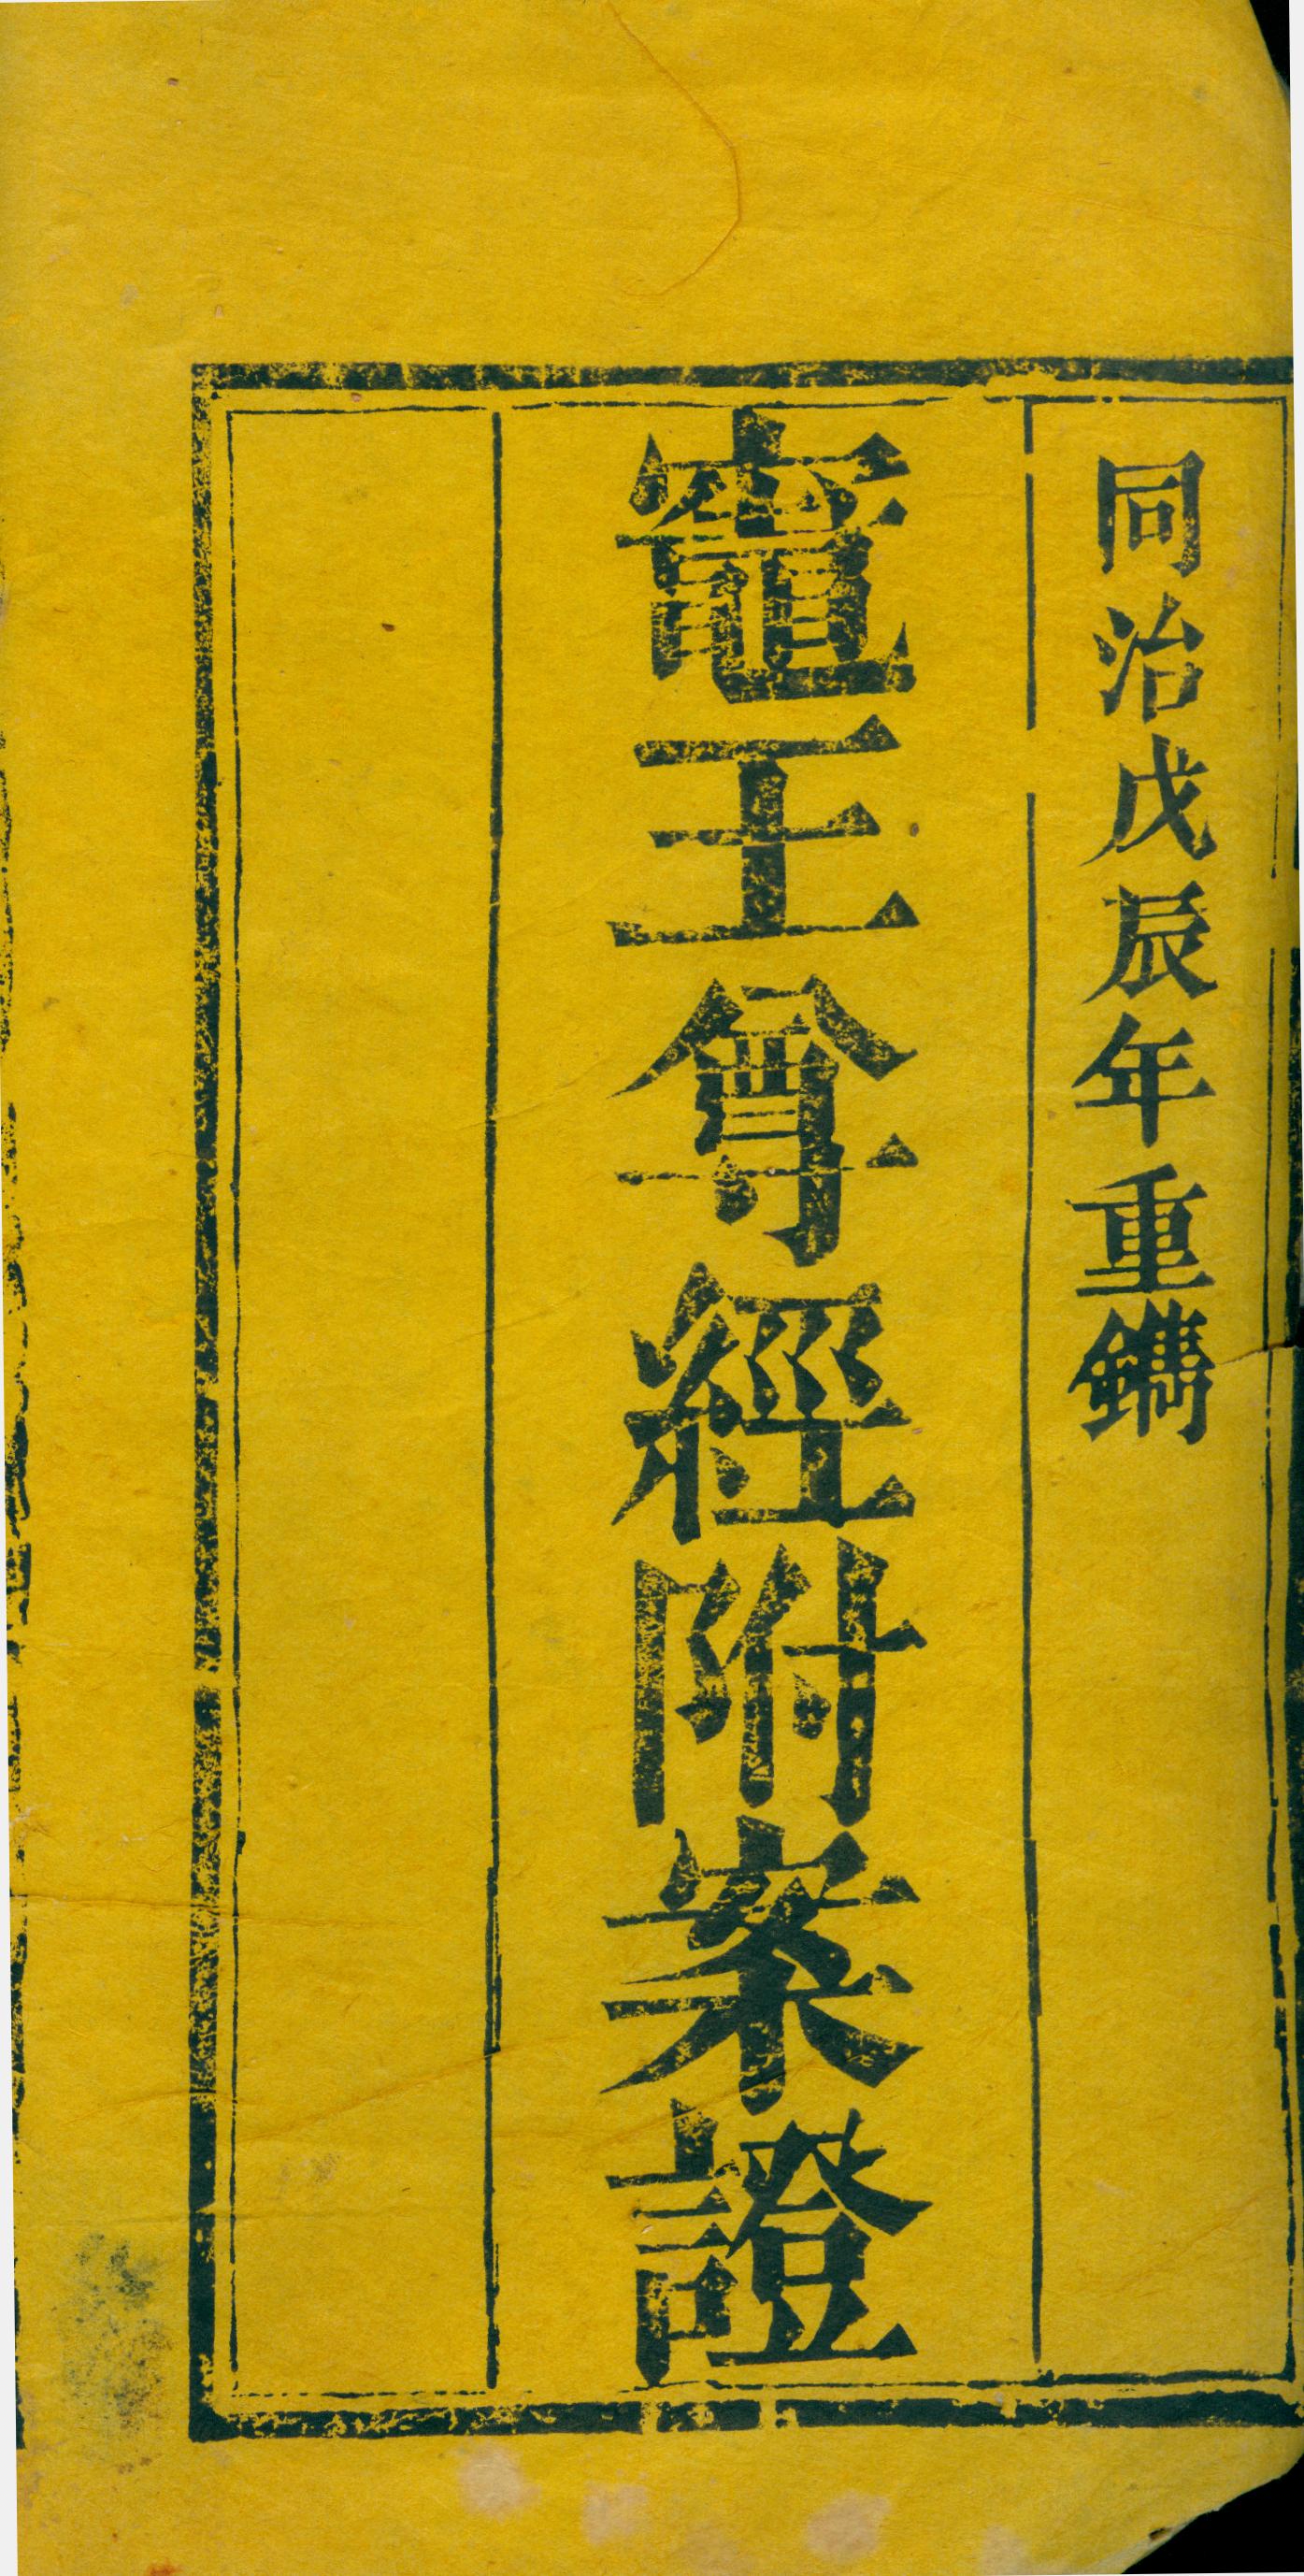 同治戊辰年重鐫
竈王尊經附案證